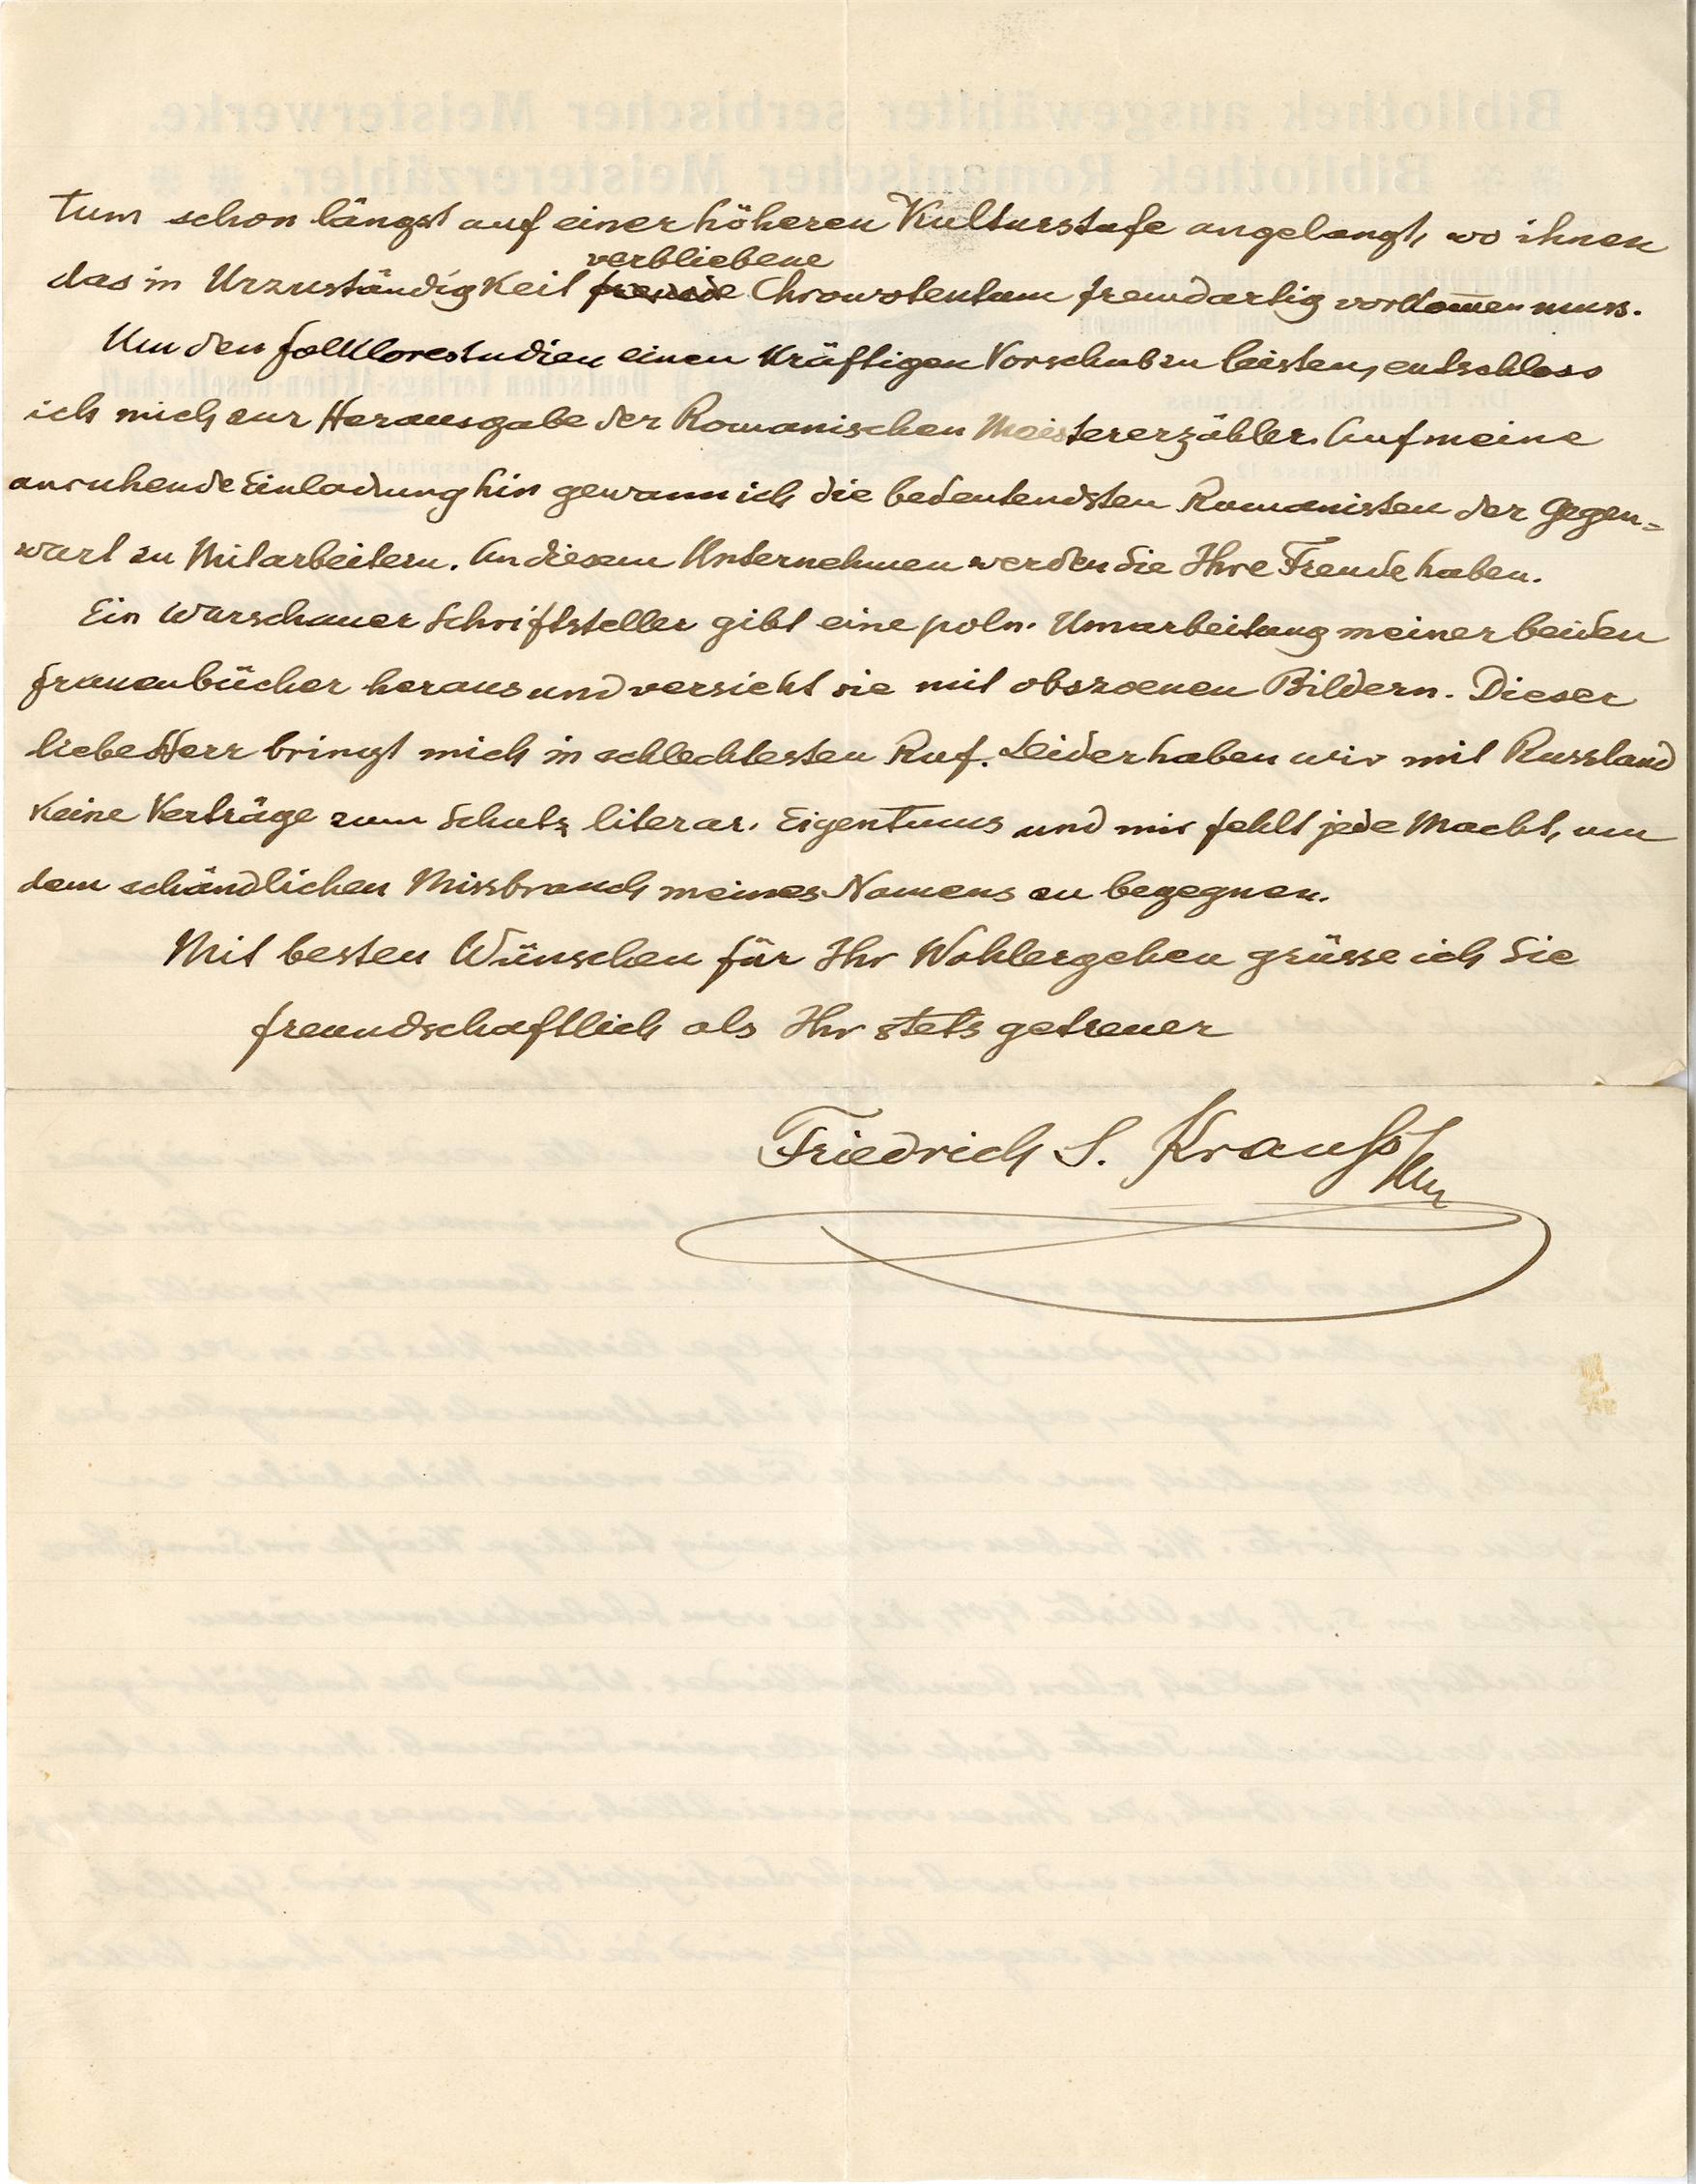 tum schon längst auf einer höheren Kulturstufe angelangt, wo ihnen
verbliebene
das in Urzuständigkeit fremde Chrowotentum fremdartig vorkommen muss.
Um den Folklorestudien einen kräftigen Vorschub zu leisten, entschloss
ich mich zur Herausgabe der Romanischen Meistererzähler. Auf meine
Einladung hin gewann ich die bedeutendsten Romanisten der Gegen=
wart zu Mitarbeitern. An diesem Unternehmen werden Sie Ihre Freude haben.
Ein Warschauer Schriftsteller gibt eine poln. Umarbeitung meiner beiden
Frauenbücher heraus und versieht sie mit obszoenen Bildern. Dieser
liebe Herr bringt mich in schlechtesten Ruf. Leider haben wir mit Russland
keine Verträge zum Schutz literar. Eigentums und mir fehlt jede Macht, um
dem schändlichen Missbrauch meines Namens zu begegnen.
Mit besten Wünschen für Ihr Wohlergehen grüsse ich Sie
freundschaftlich als Ihr stets getreuer
Friedrich S. Krauss